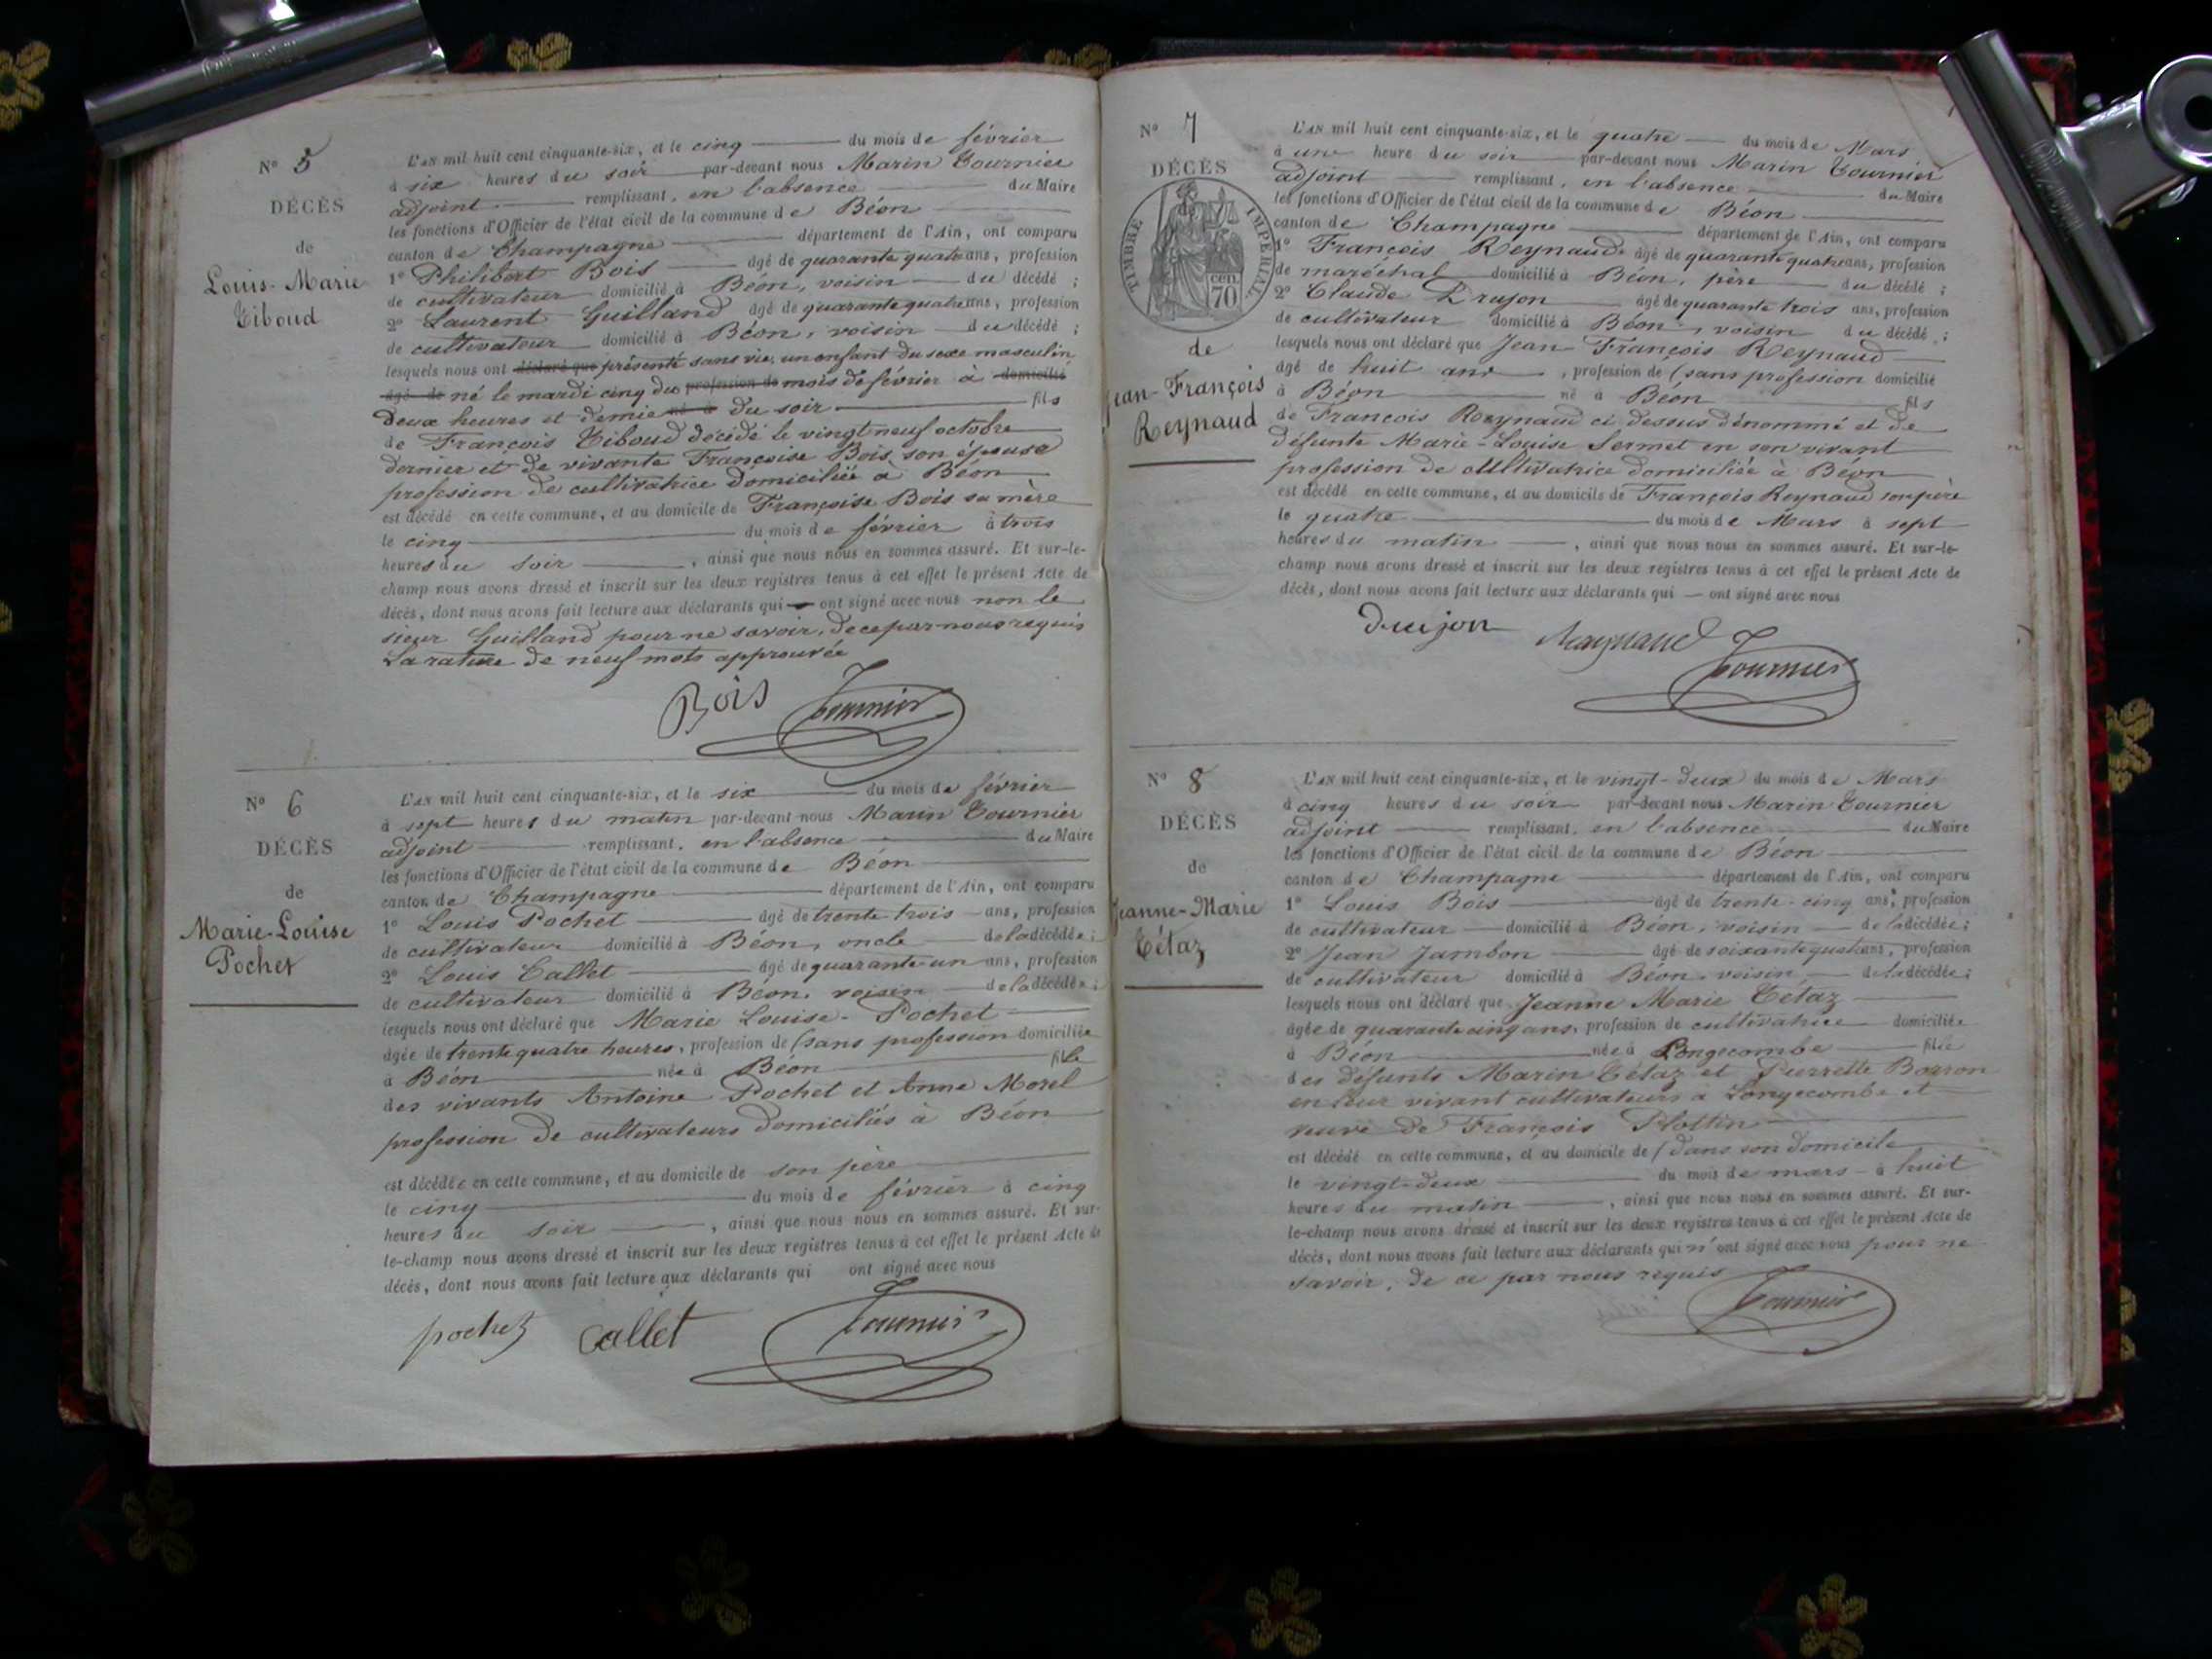 N° 5
DÉCÈS
de
Louis-Marie
Tiboud
L'AN mil huit cent cinquante-six, et le cinq du mois de février
à six heures du soir par-devant nous Marin Tournier
adjoint remplissant, en l'absence du Maire
les fonctions d'Officier de l'état civil de la commune de Béon
canton de Champagne département de l'Ain, ont comparu
1° Philibert Bois âgé de quarante quatre ans, profession
de cultivateur domicilié à Béon, voisin du décédé ;
2° Laurent Guilland âgé de quarante quatre ans, profession
de cultivateur domicilié à Béon, voisin du décédé ;
lesquels nous ont déclaré que présenté sans vie, un enfant du sexe masculin
âgé de né le mardi cinq du profession de mois de février à domicilié
deux heures et demie né à du soir fils
de François Tiboud décédé le vingt neuf octobre
dernier et de vivante Françoise Bois, son épouse
profession de cultivatrice domiciliée à Béon
est décédé en cette commune, et au domicile de Françoise Bois sa mère
le cinq du mois de février à trois
heures du soir, ainsi que nous nous en sommes assuré. Et sur-le-
champ nous avons dressé et inscrit sur les deux registres tenus à cet effet le présent Acte de
décès, dont nous avons fait lecture aux déclarants qui — ont signé avec nous non le
sieur Guilland pour ne savoir, de ce par nous requis
La rature de neuf mots approuvée
Bois Tournier
N° 6
DÉCÈS
de
Marie-Louise
Pochet
L'AN mil huit cent cinquante-six, et le six du mois de février
à sept heures du matin par-devant nous Marin Tournier
adjoint remplissant, en l'absence du Maire
les fonctions d'Officier de l'état civil de la commune de Béon
canton de Champagne département de l'Ain, ont comparu
1° Louis Pochet âgé de trente trois ans, profession
de cultivateur domicilié à Béon, oncle de la décédée ;
2° Louis Callet âgé de quarante-un ans, profession
de cultivateur domicilié à Béon, voisin de la décédée ;
lesquels nous ont déclaré que Marie Louise Pochet
âgée de trente quatre heures, profession de (sans profession domiciliée
à Béon née à Béon fille
des vivants Antoine Pochet et Anne Morel
profession de cultivateurs domiciliés à Béon
est décédée en cette commune, et au domicile de son père
le cinq du mois de février à cinq
heures du soir, ainsi que nous nous en sommes assuré. Et sur-
le-champ nous avons dressé et inscrit sur les deux registres tenus à cet effet le présent Acte de
décès, dont nous avons fait lecture aux déclarants qui ont signé avec nous
pochet Callet Tournier
N° 7
DÉCÈS
TIMBRE IMPÉRIAL
70 cen.
de
Jean-François
Reynaud
L'AN mil huit cent cinquante-six, et le quatre du mois de Mars
à une heure du soir par-devant nous Marin Tournier
adjoint remplissant, en l'absence du Maire
les fonctions d'Officier de l'état civil de la commune de Béon
canton de Champagne département de l'Ain, ont comparu
1° François Reynaud âgé de quarante quatre ans, profession
de maréchal domicilié à Béon, père du décédé ;
2° Claude Drujon âgé de quarante trois ans, profession
de cultivateur domicilié à Béon, voisin du décédé ;
lesquels nous ont déclaré que Jean François Reynaud
âgé de huit ans, profession de (sans profession domicilié
à Béon né à Béon fils
de François Reynaud ci dessus dénommé et de
défunte Marie-Louise Sermet en son vivant
profession de cultivatrice domiciliée à Béon
est décédé en cette commune, et au domicile de François Reynaud son père
le quatre du mois de Mars à sept
heures du matin, ainsi que nous nous en sommes assuré. Et sur-le-
champ nous avons dressé et inscrit sur les deux registres tenus à cet effet le présent Acte de
décès, dont nous avons fait lecture aux déclarants qui — ont signé avec nous
Drujon Raynaud Tournier
N° 8
DÉCÈS
de
Jeanne-Marie
Tétaz
L'AN mil huit cent cinquante-six, et le vingt-deux du mois de Mars
à cinq heures du soir par-devant nous Marin Tournier
adjoint remplissant, en l'absence du Maire
les fonctions d'Officier de l'état civil de la commune de Béon
canton de Champagne département de l'Ain, ont comparu
1° Louis Bois âgé de trente-cinq ans, profession
de cultivateur domicilié à Béon, voisin de la décédée ;
2° Jean Jambon âgé de soixante quatre ans, profession
de cultivateur domicilié à Béon, voisin de la décédée ;
lesquels nous ont déclaré que Jeanne Marie Tétaz
âgée de quarante cinq ans, profession de cultivatrice domiciliée
à Béon née à Longecombe fille
des défunts Marin Tétaz et Pierrette Borron
en leur vivant cultivateurs à Longecombe et
veuve de François Plottin
est décédé en cette commune, et au domicile de (dans son domicile
le vingt-deux du mois de mars à huit
heures du matin, ainsi que nous nous en sommes assuré. Et sur-
le-champ nous avons dressé et inscrit sur les deux registres tenus à cet effet le présent Acte de
décès, dont nous avons fait lecture aux déclarants qui n'ont signé avec nous pour ne
savoir, de ce par nous requis
Tournier